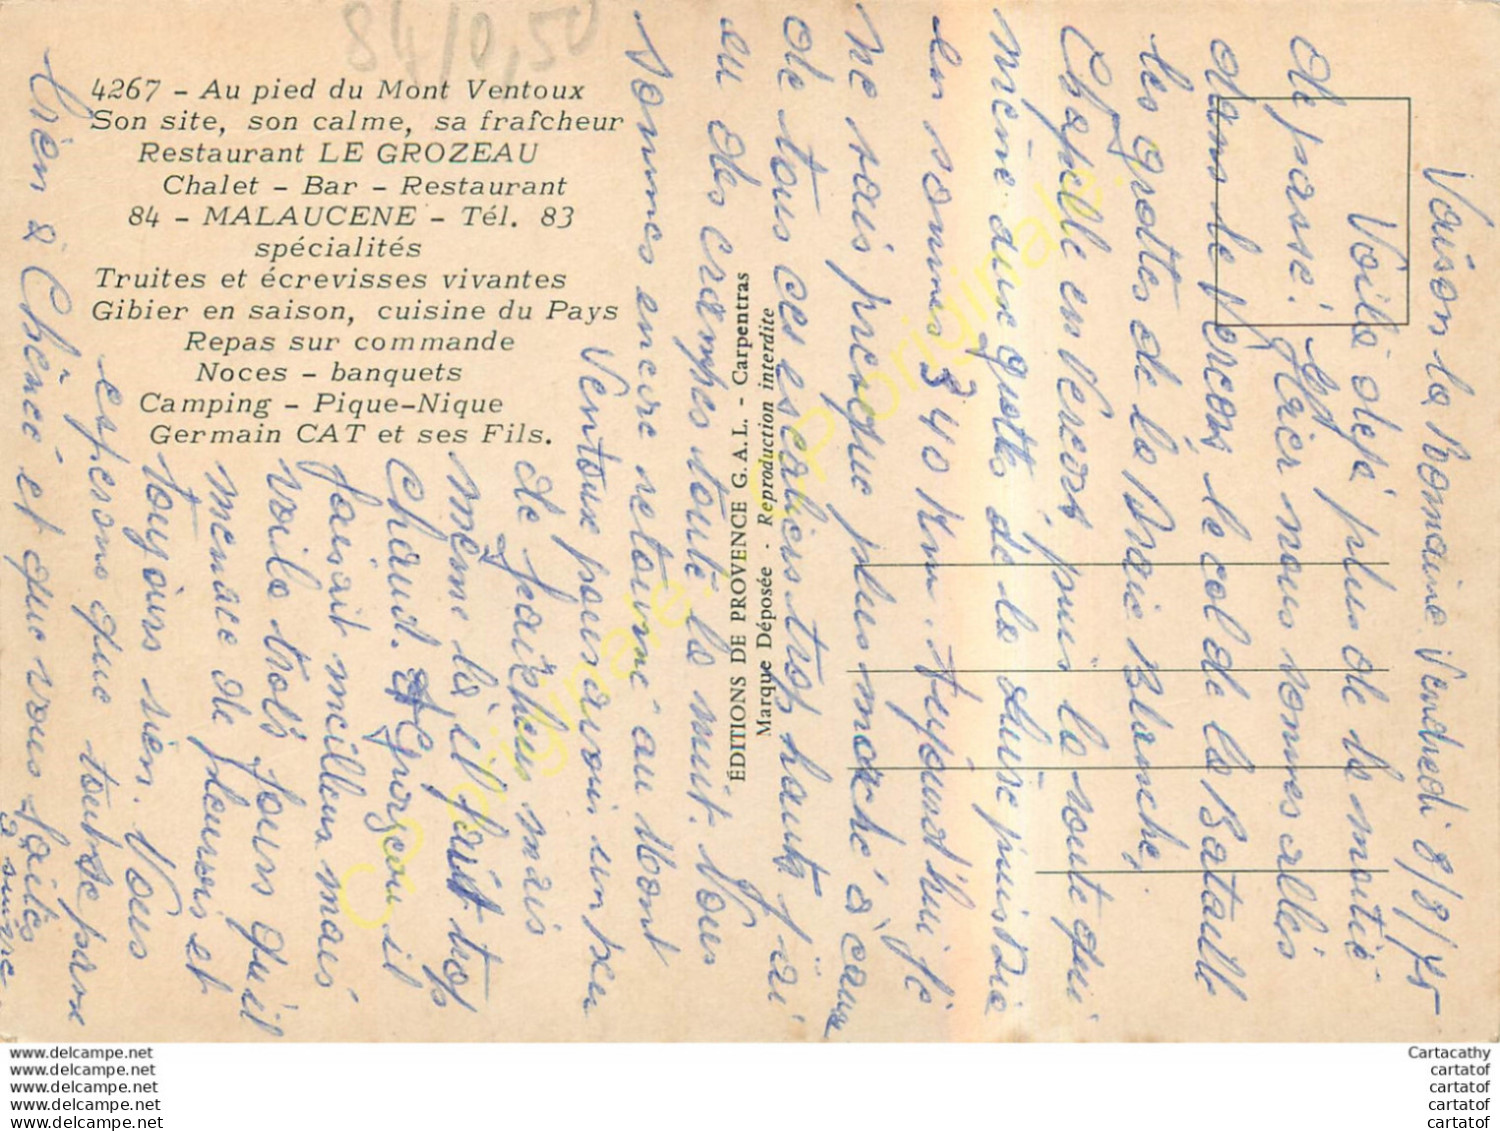 84/0,50
4267 - Au pied du Mont Ventoux
Son site, son calme, sa fraîcheur
Restaurant LE GROZEAU
Chalet - Bar - Restaurant
84 - MALAUCENE - Tél. 83
spécialités
Truites et écrevisses vivantes
Gibier en saison, cuisine du Pays
Repas sur commande
Noces - banquets
Camping - Pique-Nique
Germain CAT et ses Fils.
ÉDITIONS DE PROVENCE G.A.L. - Carpentras
Marque Déposée - Reproduction interdite
Vaison la Romaine Vendredi 8/8/75
Voilà déjà plus de la moitié
de passé. Hier nous sommes allés
dans le Vercors, le col de la Bataille
les grottes de la Draie Blanche,
Chapelle en Vercors, puis la route qui
mène aux grotte de la Luire puis Die
en somme 340 Km. Aujourd'hui je
ne sais presque plus marché à cause
de tous ces escaliers trop haut j'ai
eu des crampes toute la nuit. Nous
sommes encore retourné au Mont
Ventoux pour avoir un peu
de fraîcheur mais
même là il fait trop
chaud. A Grozeau il
faisait meilleur mais
voila trois jours qu'il
menace de pleuvoir et
toujours rien. Nous
espérons que tout se passe
bien à Chêne et que vous faites
à suivre.
© originale
www.delcampe.net
www.delcampe.net
www.delcampe.net
www.delcampe.net
www.delcampe.net
Cartacathy
cartatof
cartatof
cartatof
cartatof